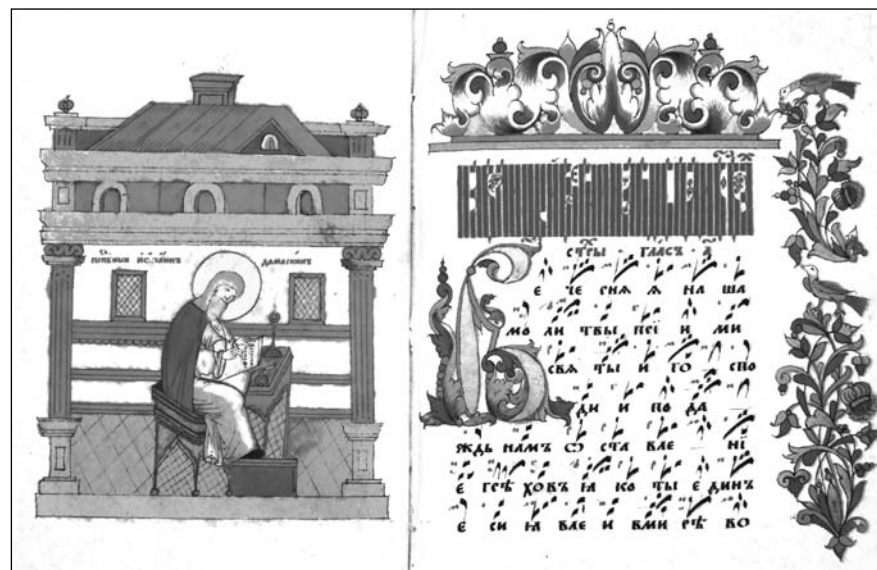 прпбныи иѡаннъ дамаскинъ
стры · гласъ · а
В е че рнѧ ѧ на ша
мо ли твы прі и ми
свѧ ты и го спо
ди и по да
ждь намъ ѡ ста вле ні
е грѣ ховъ ꙗ ко ты е динъ
е си ꙗ вле и вми рѣ во